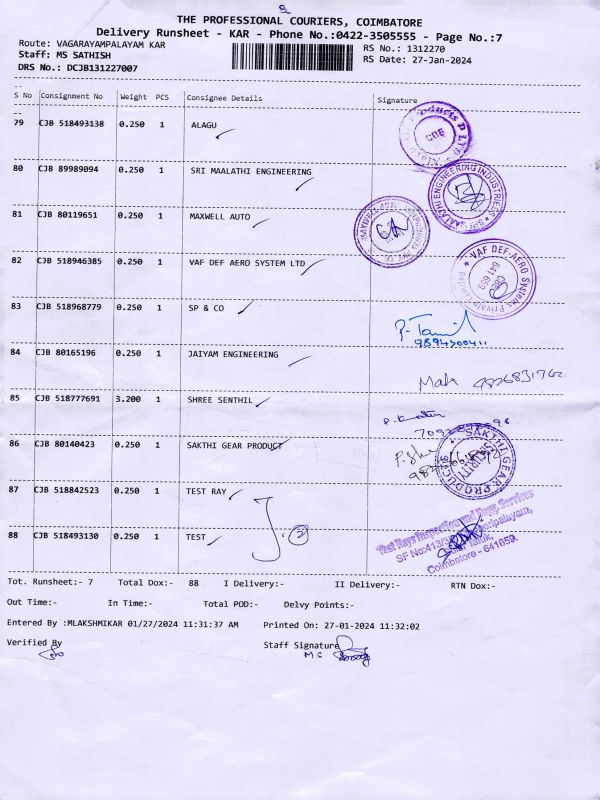 THE PROFESSIONAL COURIERS, COIMBATORE
Delivery Runsheet - KAR - Phone No.:0422-3505555 - Page No.:7
Route: VAGARAYAMPALAYAM KAR
RS No.: 1312270
Staff: MS SATHISH
RS Date: 27-Jan-2024
DRS No.: DCJB131227007
S No Consignment No Weight PCS Consignee Details Signature
79 CJB 518493138 0.250 1 ALAGU
80 CJB 89989094 0.250 1 SRI MAALATHI ENGINEERING
81 CJB 80119651 0.250 1 MAXWELL AUTO
82 CJB 518946385 0.250 1 VAF DEF AERO SYSTEM LTD
VAF DEF-AERO Systems Private
641 659
CBE
83 CJB 518968779 0.250 1 SP & CO
9894300411
84 CJB 80165196 0.250 1 JAIYAM ENGINEERING
85 CJB 518777691 3.200 1 SHREE SENTHIL
86 CJB 80140423 0.250 1 SAKTHI GEAR PRODUCT
SAKTHI GEAR PRODUCTS
SECURITY
87 CJB 518842523 0.250 1 TEST RAY
88 CJB 518493130 0.250 1 TEST
2
Test Rays Inspection and Engg. Services
Coimbatore - 641659.
Tot. Runsheet:- 7 Total Dox:- 88 I Delivery:- II Delivery:- RTN Dox:-
Out Time:- In Time:- Total POD:- Delvy Points:-
Entered By :MLAKSHMIKAR 01/27/2024 11:31:37 AM Printed On: 27-01-2024 11:32:02
Verified By Staff Signature
M S